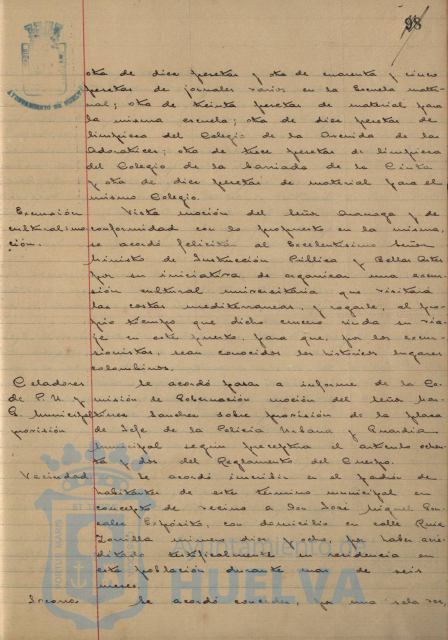 98
AYUNTAMIENTO DE HUELVA
otra de diez pesetas y otra de cuarenta y cinco
pesetas de jornales varios en la Escuela mater-
nal; otra de treinta pesetas de material para
la misma escuela; otra de diez pesetas de
limpieza del Colegio de la Avenida de las
Adoratrices; otra de trece pesetas de limpieza
del Colegio de la barriada de la Cinta
y otra de diez pesetas de material para el
mismo Colegio.
Excursión Vista moción del Señor Aranaga y de
cultural: mo- conformidad con lo propuesto en la misma,
ción. se acordó felicitar al Excelentísimo Señor
Ministro de Instrucción Pública y Bellas Artes
por su iniciativa de organizar una excur-
sión cultural universitaria que visitará
las costas mediterraneas, y rogarle, al pro-
pio tiempo que dicho crucero rinda su via-
je en este puerto, para que, por los excur-
sionistas, sean conocidos los historicos lugares
colombinos.
Celadores Se acordó pasar a informe de la Co-
de P. U. y misión de Gobernación moción del Señor
G. Municipal: Sanchez sobre provisión de la plaza
provisión de Jefe de la Policia Urbana y Guardia
Municipal segun preceptua el articulo ochen-
ta y dos del Reglamento del Cuerpo.
Vecindad Se acordó inscribir en el padrón de
habitantes de este termino municipal en
concepto de vecino a Don José Miguel Gon-
zalez Expósito, con domicilio en calle Ruiz
Zorrilla numero diez y ocho, por haber acre-
ditado testificalmente su residencia en
esta población durante mas de seis
meses.
Se acordó conceder, por una sola vez,
Ayuntamiento de
HUELVA